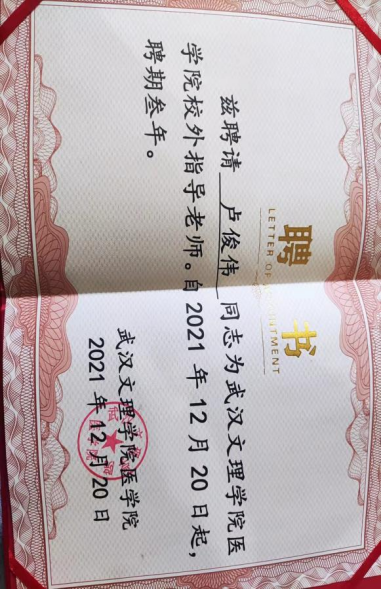 聘书
LETTER OF APPOINTMENT
兹聘请 卢俊伟 同志为武汉文理学院医
学院校外指导老师。自2021年12月20日起，
聘期叁年。
武汉文理学院医学院
2021年12月20日